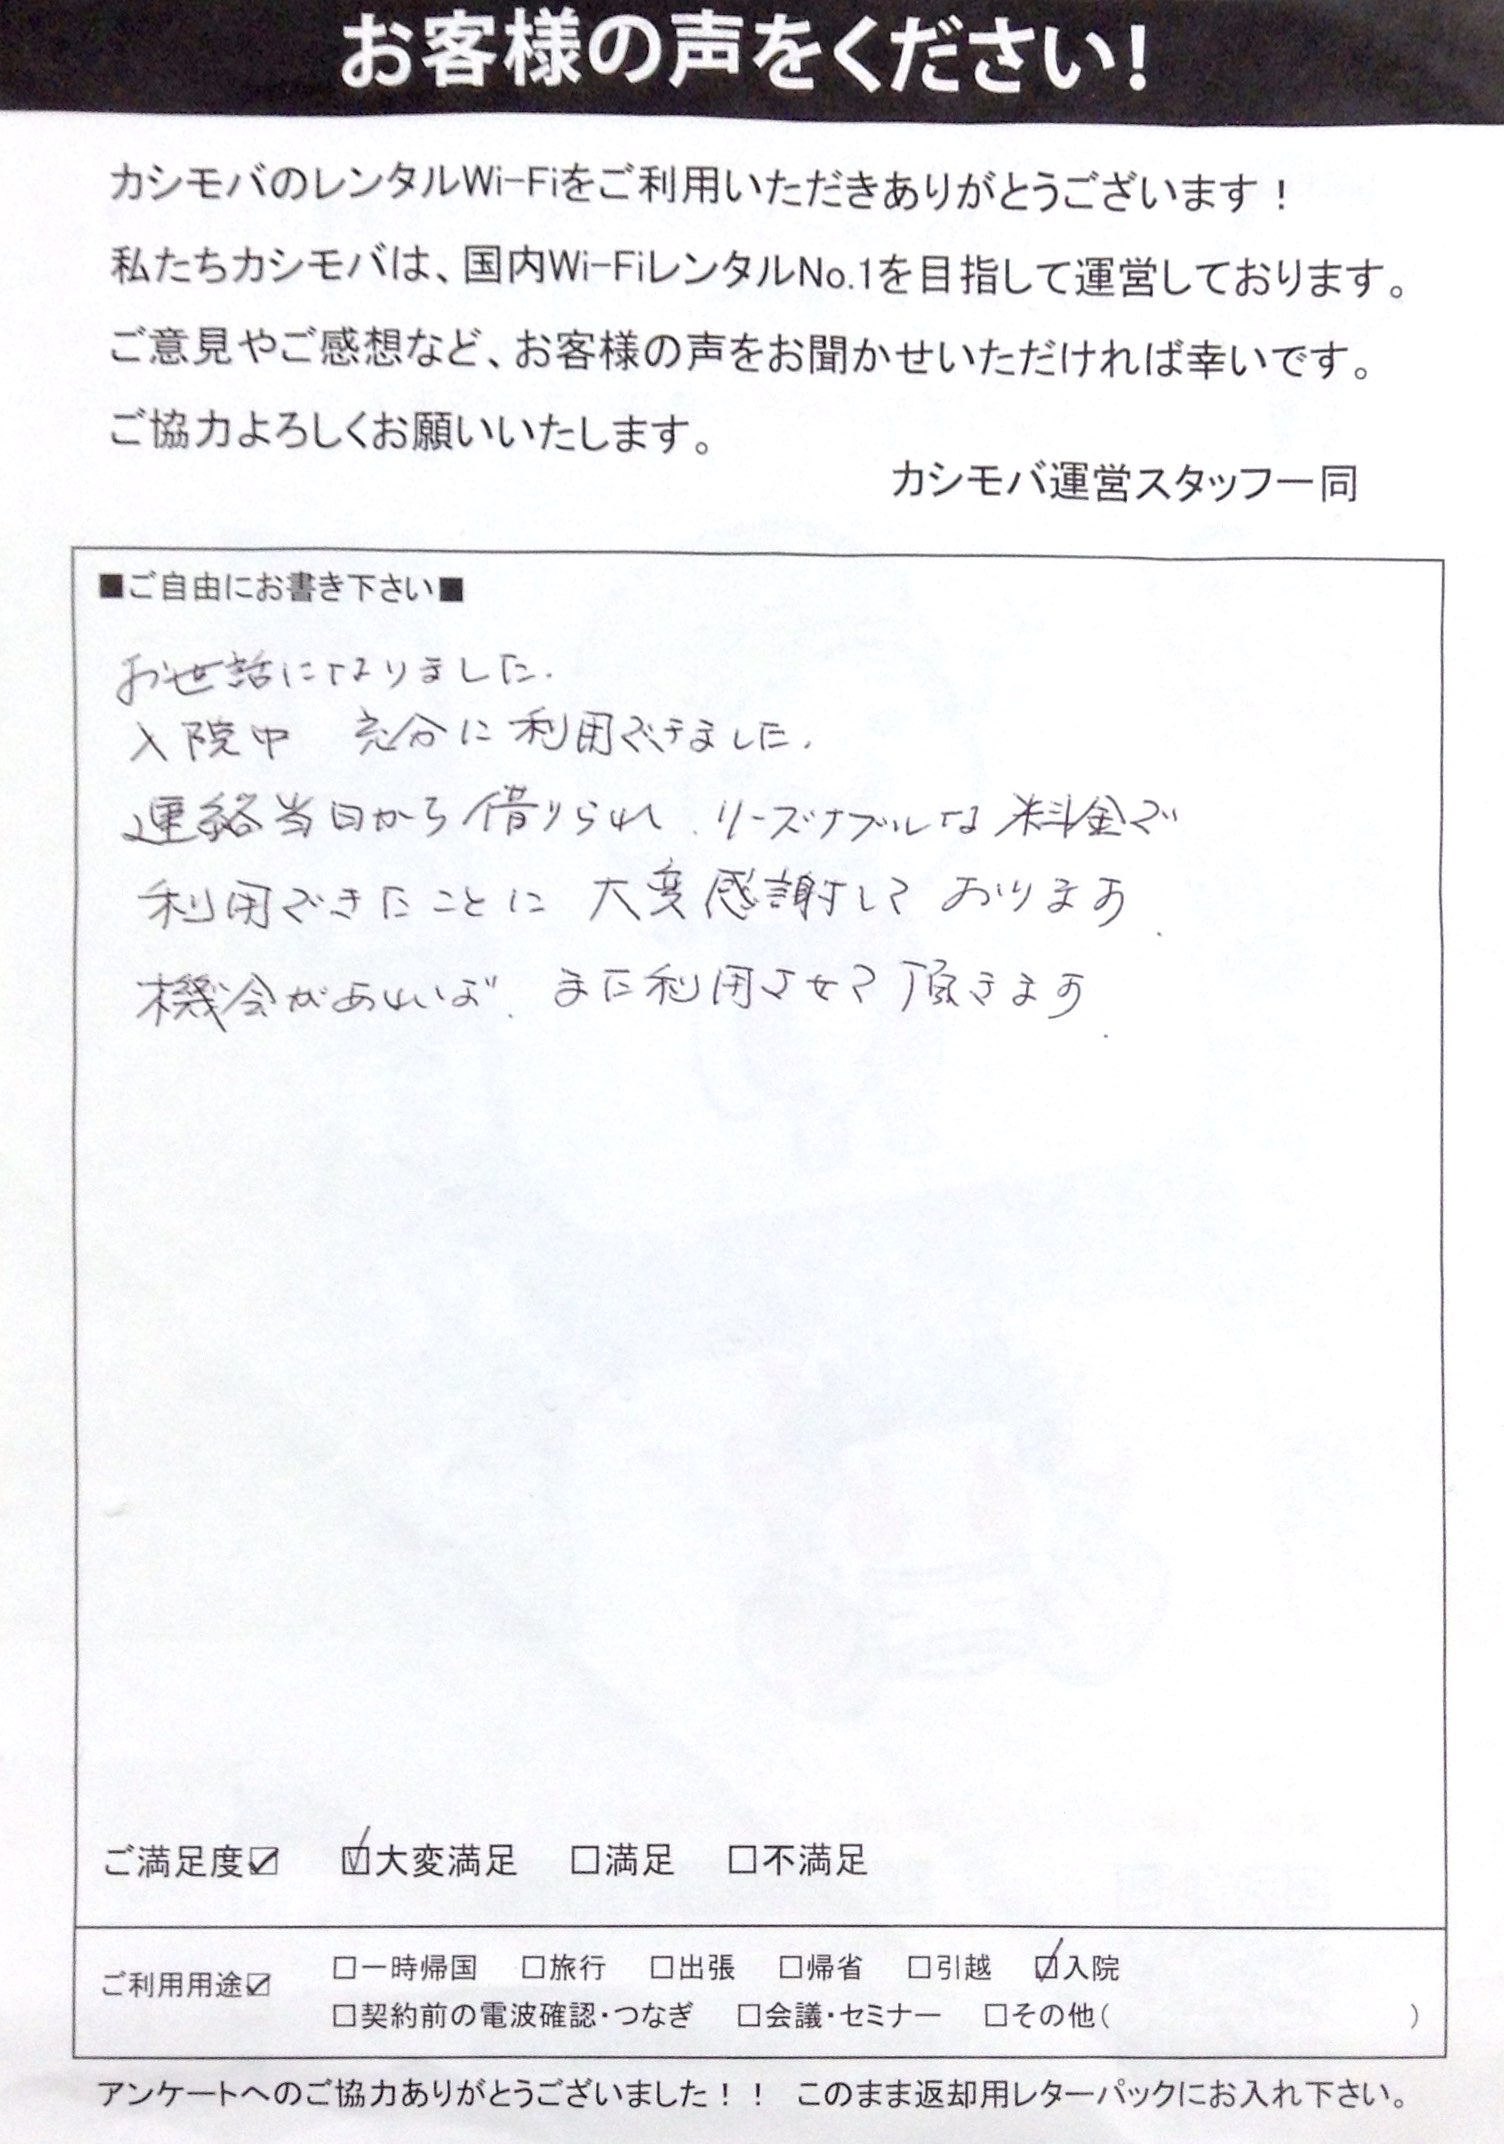 お客様の声をください!
カシモバのレンタルWi-Fiをご利用いただきありがとうございます！
私たちカシモバは、国内Wi-FiレンタルNo.1を目指して運営しております。
ご意見やご感想など、お客様の声をお聞かせいただければ幸いです。
ご協力よろしくお願いいたします。
カシモバ運営スタッフ一同
■ご自由にお書き下さい■
お世話になりました.
入院中 充分に利用できました.
連絡当日から借りられ、リーズナブルな料金で
利用できたことに 大変感謝して おります.
機会があれば、また利用させて頂きます.
ご満足度☑ ☑大変満足 □満足 □不満足
ご利用用途☑ □一時帰国 □旅行 □出張 □帰省 □引越 ☑入院
□契約前の電波確認・つなぎ □会議・セミナー □その他( )
アンケートへのご協力ありがとうございました！！ このまま返却用レターパックにお入れ下さい。